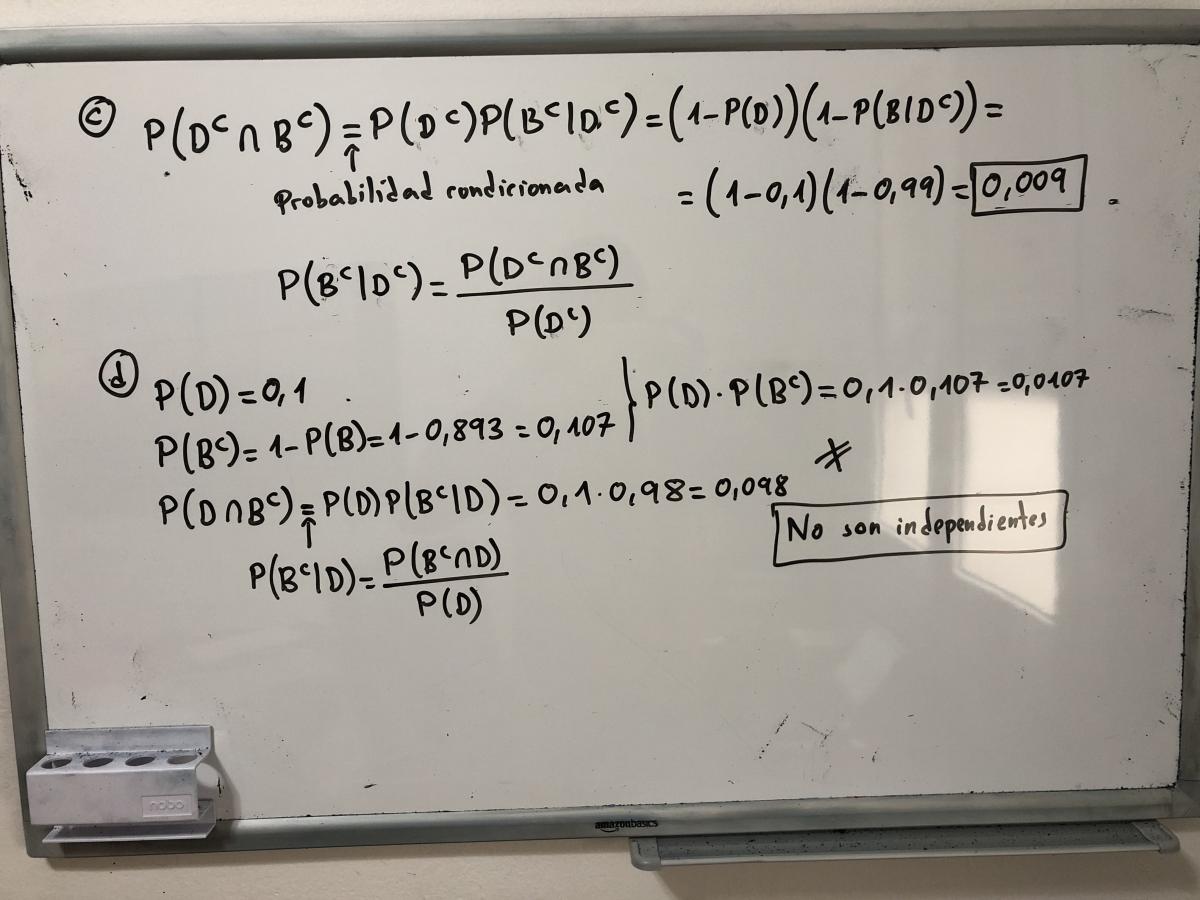 ⓒ P(Dᶜ ∩ Bᶜ) = P(Dᶜ)P(Bᶜ|Dᶜ) = (1-P(D))(1-P(B|Dᶜ)) =
↑
Probabilidad condicionada = (1-0,1)(1-0,99) = 0,009
P(Bᶜ|Dᶜ) = P(Dᶜ∩Bᶜ) / P(Dᶜ)
ⓓ P(D) = 0,1
P(Bᶜ) = 1-P(B) = 1-0,893 = 0,107 } P(D)·P(Bᶜ) = 0,1·0,107 = 0,0107
≠
P(D∩Bᶜ) = P(D)P(Bᶜ|D) = 0,1·0,98 = 0,098
↑
No son independientes
P(Bᶜ|D) = P(Bᶜ∩D) / P(D)
nobo
amazonbasics